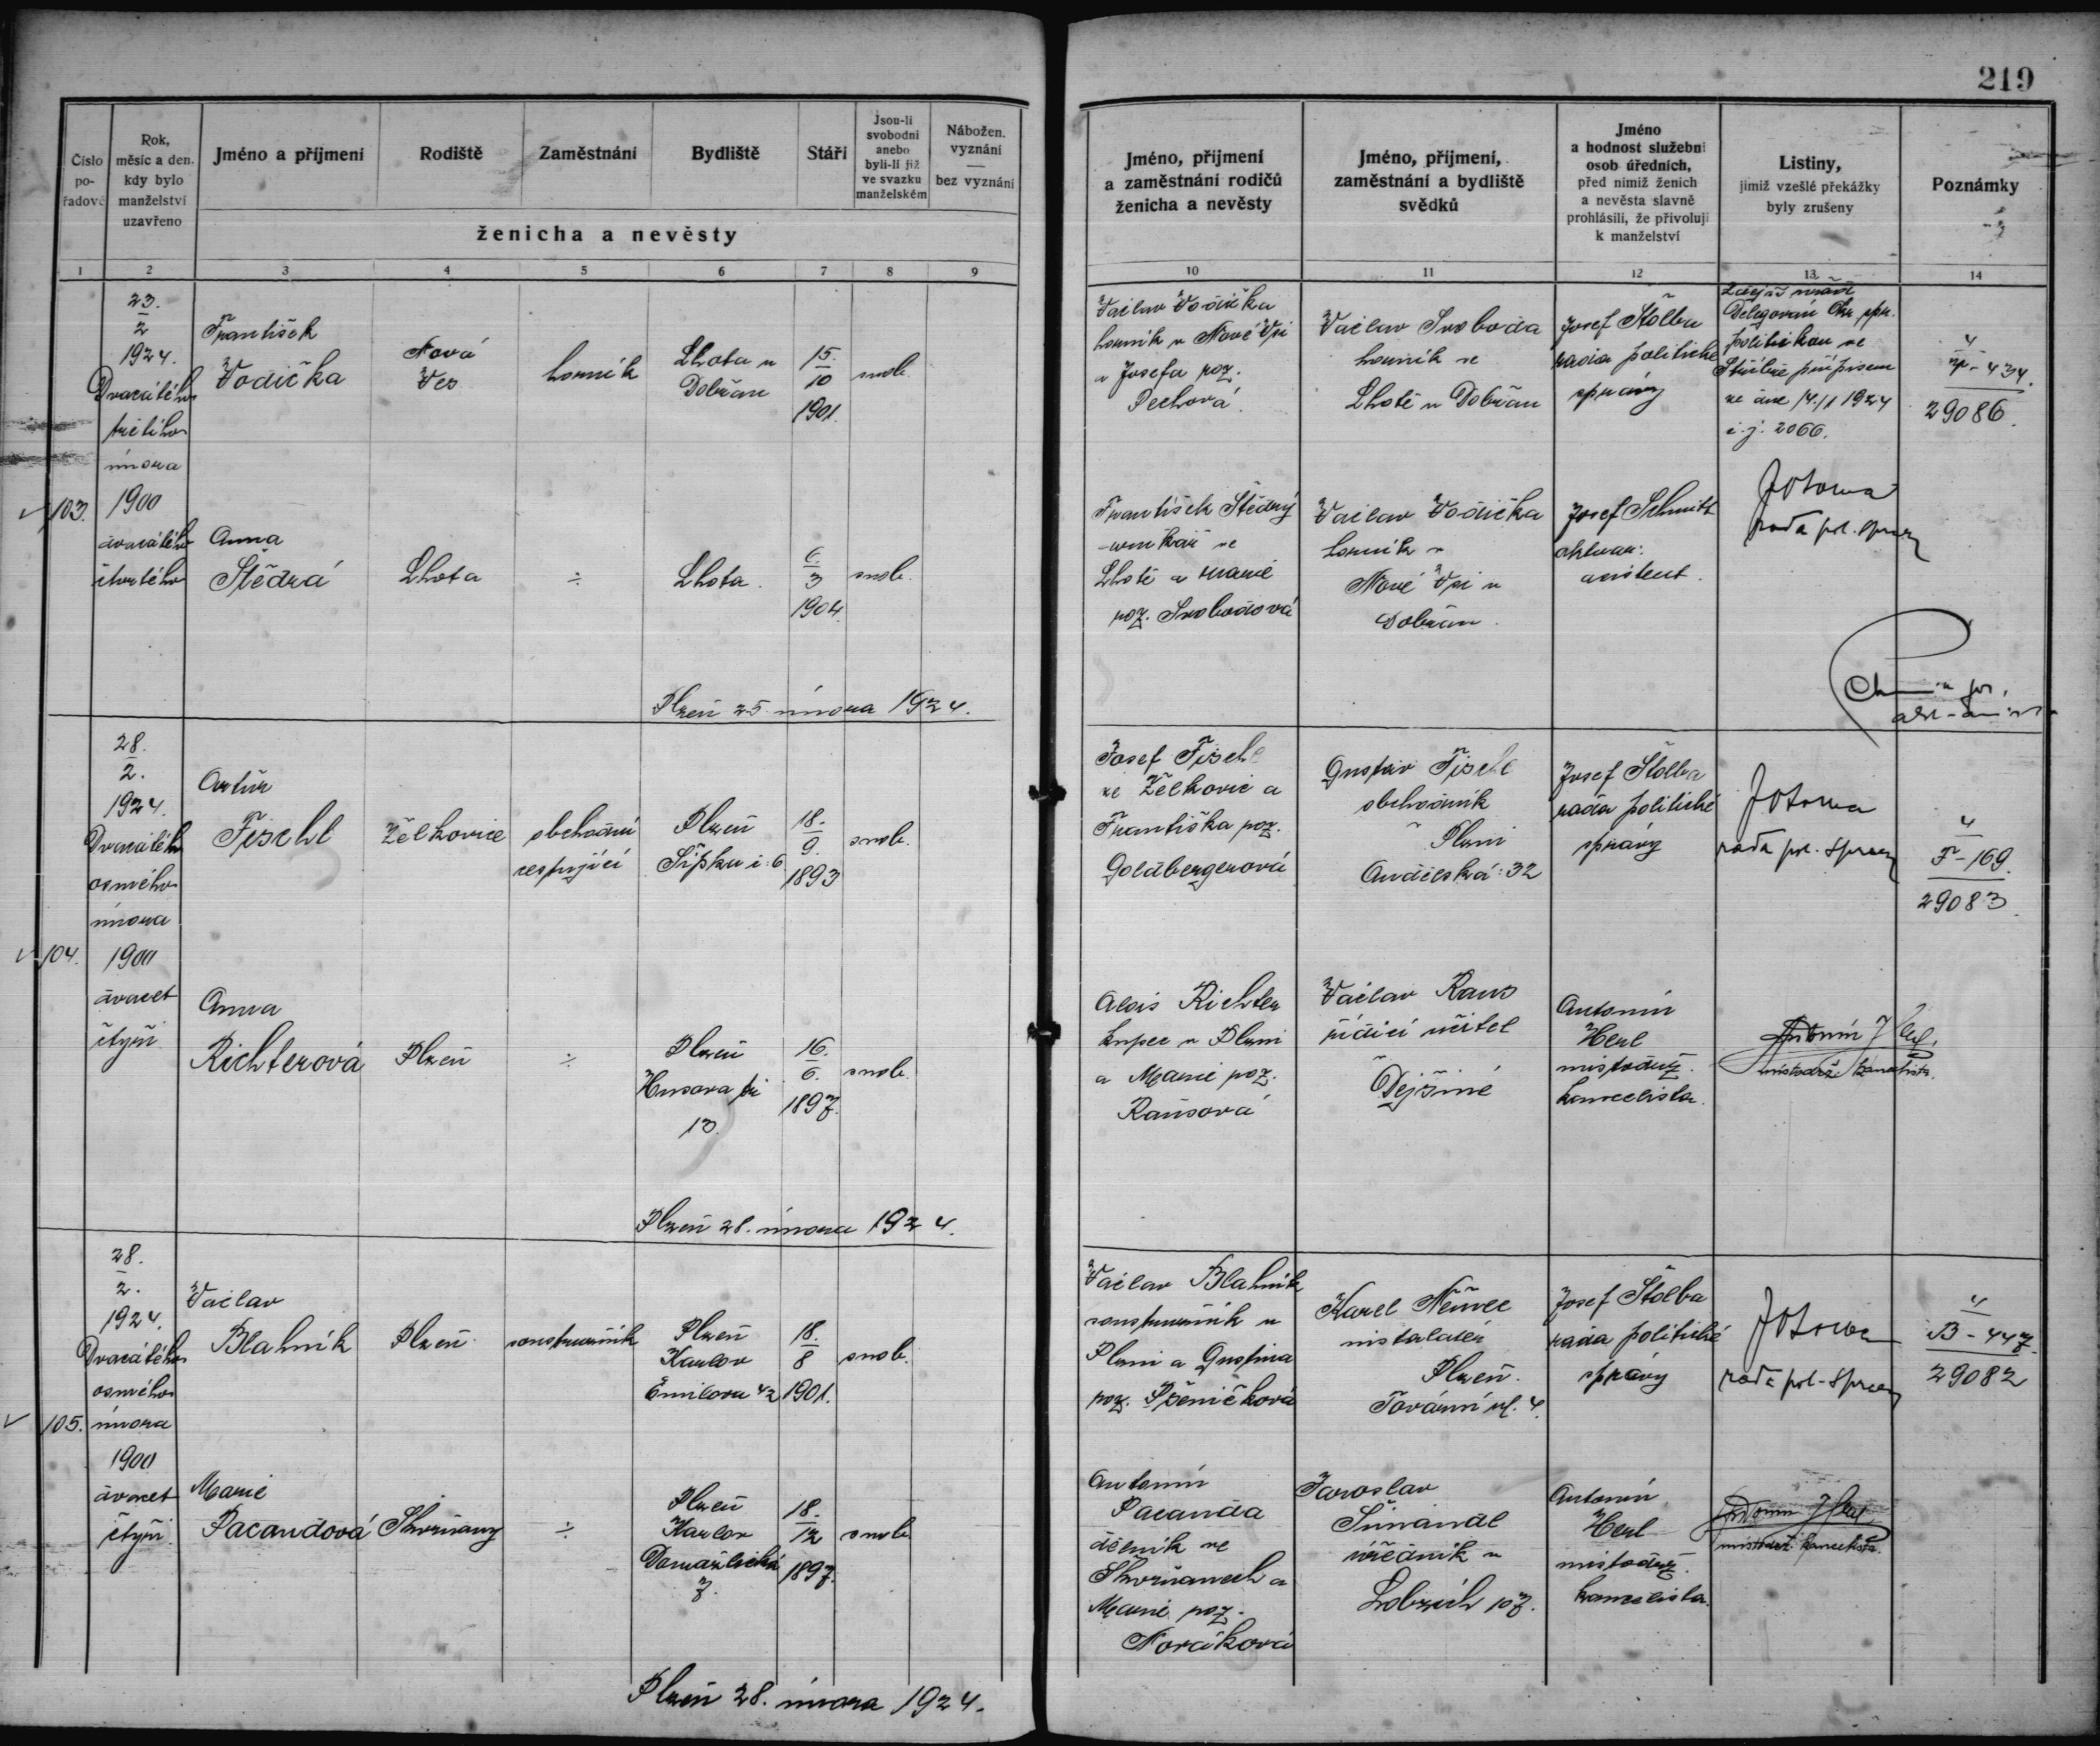 219
Číslo pořadové
Rok, měsíc a den, kdy bylo manželství uzavřeno
Jméno a příjmení
Rodiště
Zaměstnání
Bydliště
Stáří
Jsou-li svobodni anebo byli-li již ve svazku manželském
Nábožen. vyznání
bez vyznání
ženicha a nevěsty
Jméno, příjmení a zaměstnání rodičů ženicha a nevěsty
Jméno, příjmení, zaměstnání a bydliště svědků
Jméno a hodnost služební osob úředních, před nimiž ženich a nevěsta slavně prohlásili, že přivolují k manželství
Listiny, jimiž vzešlé překážky byly zrušeny
Poznámky
1 2 3 4 5 6 7 8 9 10 11 12 13 14
103.
23.
2
1924.
Dvacátého
třetího
února
1900
dvacátého
čtvrtého
František
Vodička
Nová
Ves
horník
Lhota u
Dobřan
15.
10
1901.
svob.
Václav Vodička
horník v Nové Vsi
a Josefa roz.
Pechová.
Václav Svoboda
horník ve
Lhotě u Dobřan
Josef Štolba
rada politické
správy
Delegován Okr. spr.
politickou ve
Stříbře přípisem
ze dne 14./1 1924
č.j. 2066.
4
434.
29086.
Anna
Štědrá
Lhota
÷
Lhota.
6.
3
1904.
svob.
František Štědrý
ve
Lhotě a Marie
roz. Svobodová
Václav Vodička
horník v
Nové Vsi u
Dobřan.
Josef Schmitt
asistent.
rada pol. správy
Plzeň 25. února 1924.
104.
28.
2.
1924.
Dvacátého
osmého
února
1900
dvacet
čtyři
Artur
Fischl
Želkovice
obchodní
cestující
Plzeň
Šipku č. 6
18.
9.
1893
svob.
Josef Fischl
ze Želkovic a
Františka roz.
Goldbergerová
Gustav Fischl
obchodník
Plzni
32
Josef Štolba
rada politické
správy
rada pol. správy
4
F-169.
29083.
Anna
Richterová
Plzeň
÷
Plzeň
Husova tř.
13.
16.
6.
1897.
svob.
Alois Richter
kupec v Plzni
a Marie roz.
Rausová
Václav Raus
řídící učitel
Dejšině
Antonín
Herl
místodrž.
kancelista.
Antonín Herl,
místodrž. kancelista.
Plzeň 28. února 1924.
105.
28.
2.
1924.
Dvacátého
osmého
února
1900
dvacet
čtyři
Václav
Blahník
Plzeň
soustružník
Plzeň
Karlov
Emilova 42
18.
8
1901.
svob.
Václav Blahník
soustružník v
Plzni a Gustina
roz. Pšeničková
Karel Němec
instalatér
Plzeň.
Tovární ul. 4.
Josef Štolba
rada politické
správy
rada pol. správy
4
B-447.
29082
Marie
Pacandová
Skvrňany
÷
Plzeň
Karlov
Domažlická
7.
18.
12
1897.
svob.
Antonín
Pacanda
dělník ve
Skvrňanech a
Marie roz.
Nováková
Jaroslav
Šimandl
úředník v
Lobzích 107.
Antonín
Herl
místodrž.
kancelista.
Antonín Herl
místodrž. kancelista.
Plzeň 28. února 1924.